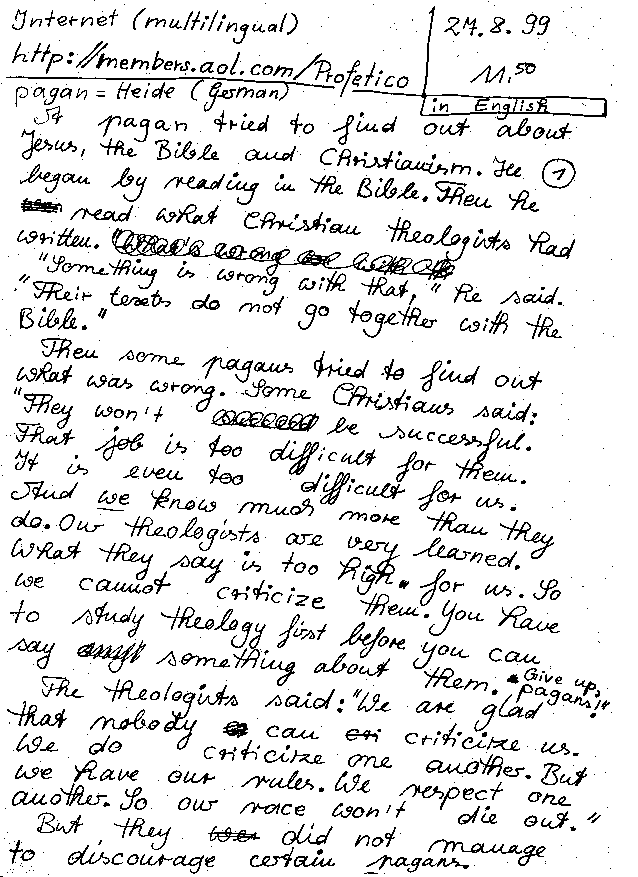 Internet (multilingual)
27.8.99
http://members.aol.com/Profetico
11.50
pagan = Heide (German)
in English
A pagan tried to find out about
Jesus, the Bible and Christianism. He
1
began by reading in the Bible. Then he
read what Christian theologists had
written.
"Something is wrong with that," he said.
"Their texts do not go together with the
Bible."
Then some pagans tried to find out
what was wrong. Some Christians said:
"They won't be successful.
That job is too difficult for them.
It is even too difficult for us.
And we know much more than they
do. Our theologists are very learned.
What they say is too high for us. So
we cannot criticize them. You have
to study theology first before you can
say something about them.
Give up,
pagans!"
The theologists said: "We are glad
that nobody can criticize us.
We do criticize one another. But
we have our rules. We respect one
another. So our race won't die out."
But they did not manage
to discourage certain pagans.